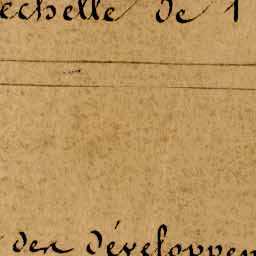 echelle de 1
des développem